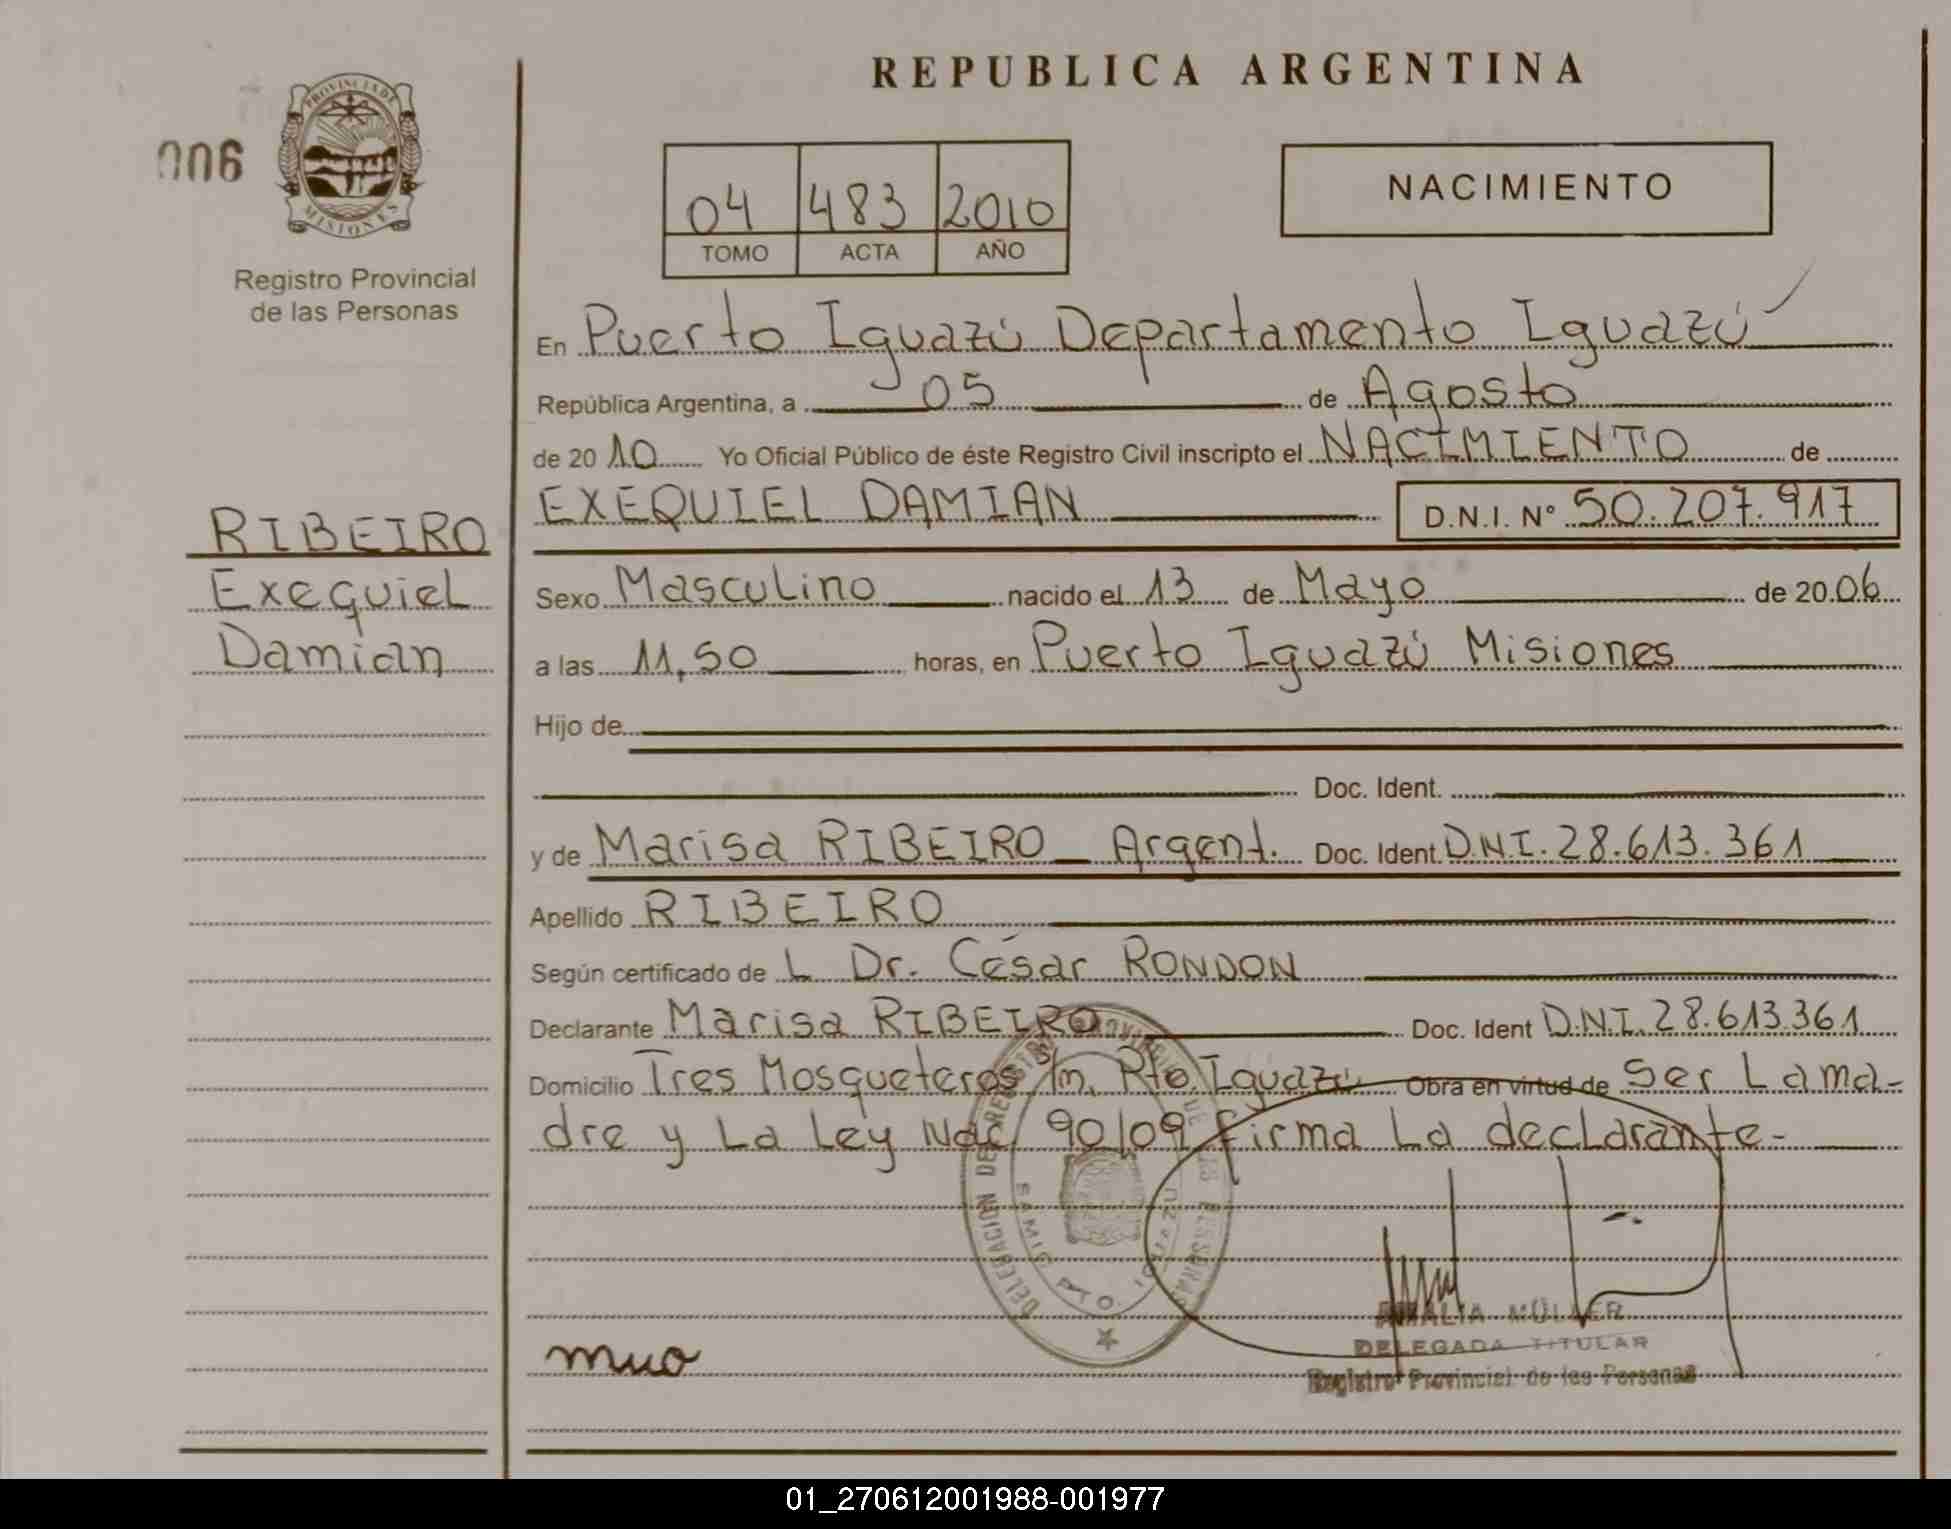 REPUBLICA ARGENTINA
PROVINCIA DE
MISIONES
006
Registro Provincial
de las Personas
04 483 2010
TOMO ACTA AÑO
NACIMIENTO
En Puerto Iguazú Departamento Iguazú
República Argentina, a 05 de Agosto
de 2010 Yo Oficial Público de éste Registro Civil inscripto el NACIMIENTO de
EXEQUIEL DAMIAN D.N.I. Nº 50.207.917
RIBEIRO
Exequiel
Damian
Sexo Masculino nacido el 13 de Mayo de 2006
a las 11,50 horas, en Puerto Iguazú Misiones
Hijo de
Doc. Ident.
y de Marisa RIBEIRO Argent. Doc. Ident. D.N.I. 28.613.361
Apellido RIBEIRO
Según certificado de L Dr. César RONDON
Declarante Marisa RIBEIRO Doc. Ident D.N.I. 28.613.361
Domicilio Tres Mosqueteros s/n. Pto. Iguazú Obra en virtud de Ser La ma-
dre y La Ley Nac. 90/09 firma La declarante-
DELEGACION DE REGISTRO PROVINCIAL DE LAS PERSONAS
PTO. IGUAZU
AMALIA MÜLLER
DELEGADA TITULAR
Registro Provincial de las Personas
01_270612001988-001977